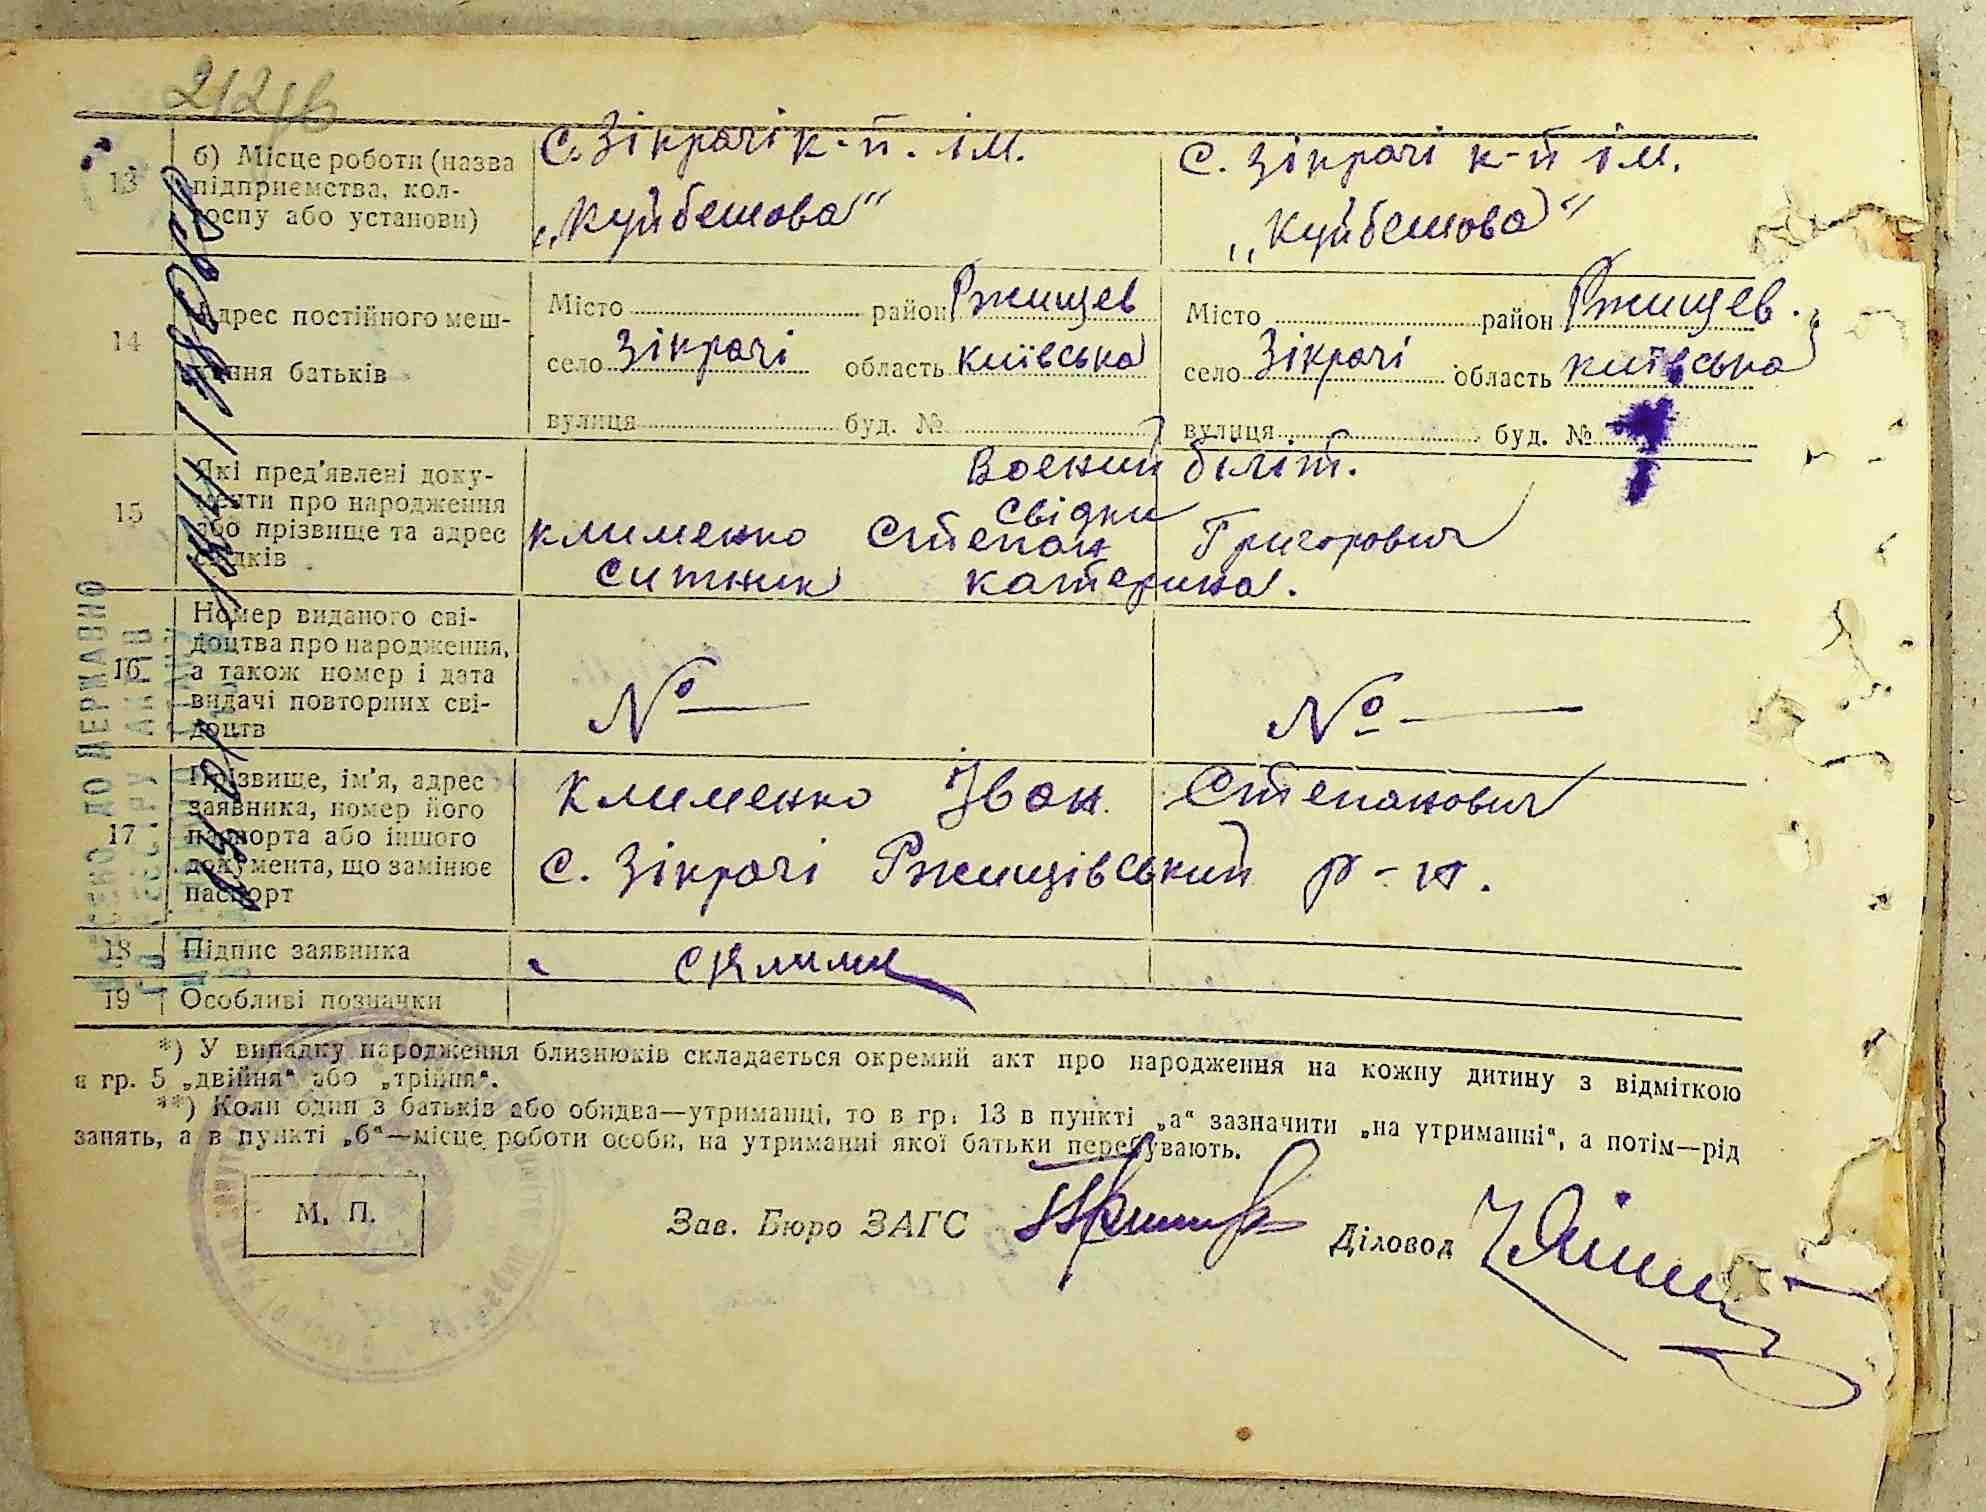 13
б) Місце роботи (назва
підприємства, кол-
госпу або установи)
с. Зікрачі к-п. ім.
„Куйбешова"
с. Зікрачі к-п ім.
„Куйбешова"
14
Адрес постійного меш-
кання батьків
Місто район Ржищев
село Зікрачі область київська
вулиця буд. №
Місто район Ржищев.
село Зікрачі область київська
вулиця буд. №
15
Які пред'явлені доку-
менти про народження
або прізвище та адрес
свідків
Воений біліт.
свідки
клименко Степан Григорович
Ситник катерина.
16
Номер виданого сві-
доцтва про народження,
а також номер і дата
видачі повторних сві-
доцтв
№ —
№ —
17
Прізвище, ім'я, адрес
заявника, номер його
паспорта або іншого
документа, що замінює
паспорт
клименко Іван Степанович
с. Зікрачі Ржищівський р-н.
18
Підпис заявника
19
Особливі позначки
*) У випадку народження близнюків складається окремий акт про народження на кожну дитину з відміткою
в гр. 5 „двійня" або „трійня".
**) Коли один з батьків або обидва—утриманці, то в гр. 13 в пункті „а" зазначити „на утриманні", а потім—рід
занять, а в пункті „б"—місце роботи особи, на утриманні якої батьки перебувають.
М. П.
Зав. Бюро ЗАГС
Діловод